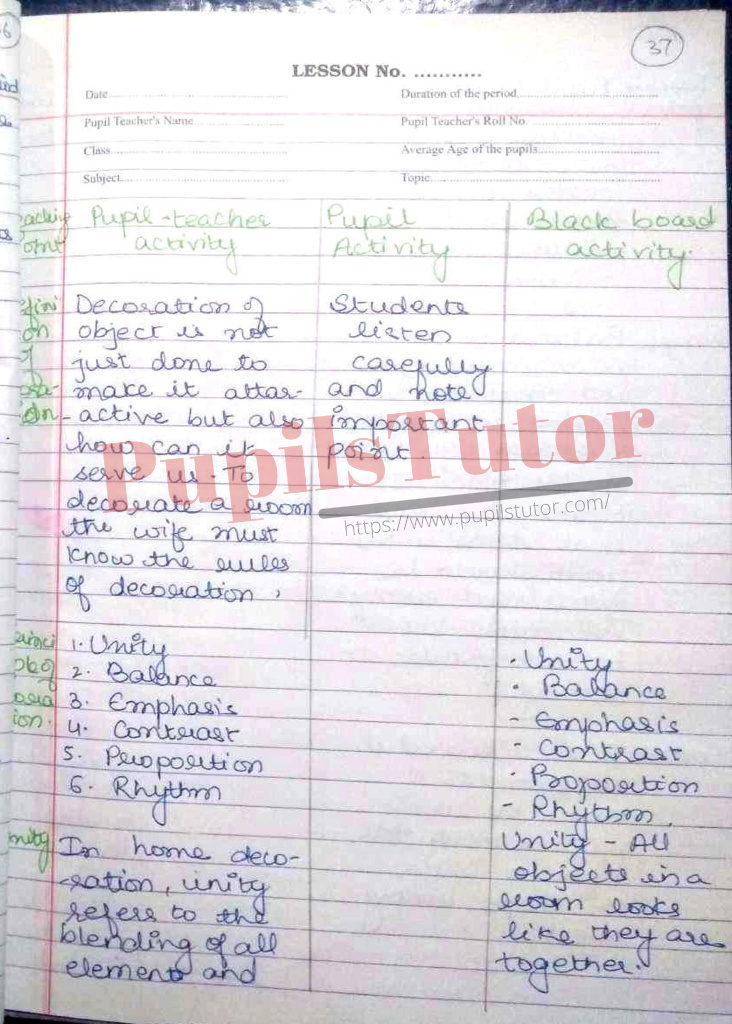 37
LESSON No. ...........
Date
Duration of the period
Pupil Teacher's Name
Pupil Teacher's Roll No.
Class
Average Age of the pupils
Subject
Topic
aching Pupil-teacher Pupil Black board
oint activity Activity activity.
fini Decoration of Students
on object is not listen
of just done to carefully
ora- make it attar- and note
on -active but also important
how can it point.
serve us. To
decorate a room
the wife must
know the rules
of decoration,
PupilsTutor
https://www.pupilstutor.com/
princi 1. Unity · Unity
ple of 2. Balance · Balance
cora 3. Emphasis - Emphasis
ion. 4. Contrast - Contrast
5. Proportion · Proportion
6. Rhythm - Rhythm.
nity In home deco- Unity - All
-ration, unity objects in a
refers to the room looks
blending of all like they are
elements and together.